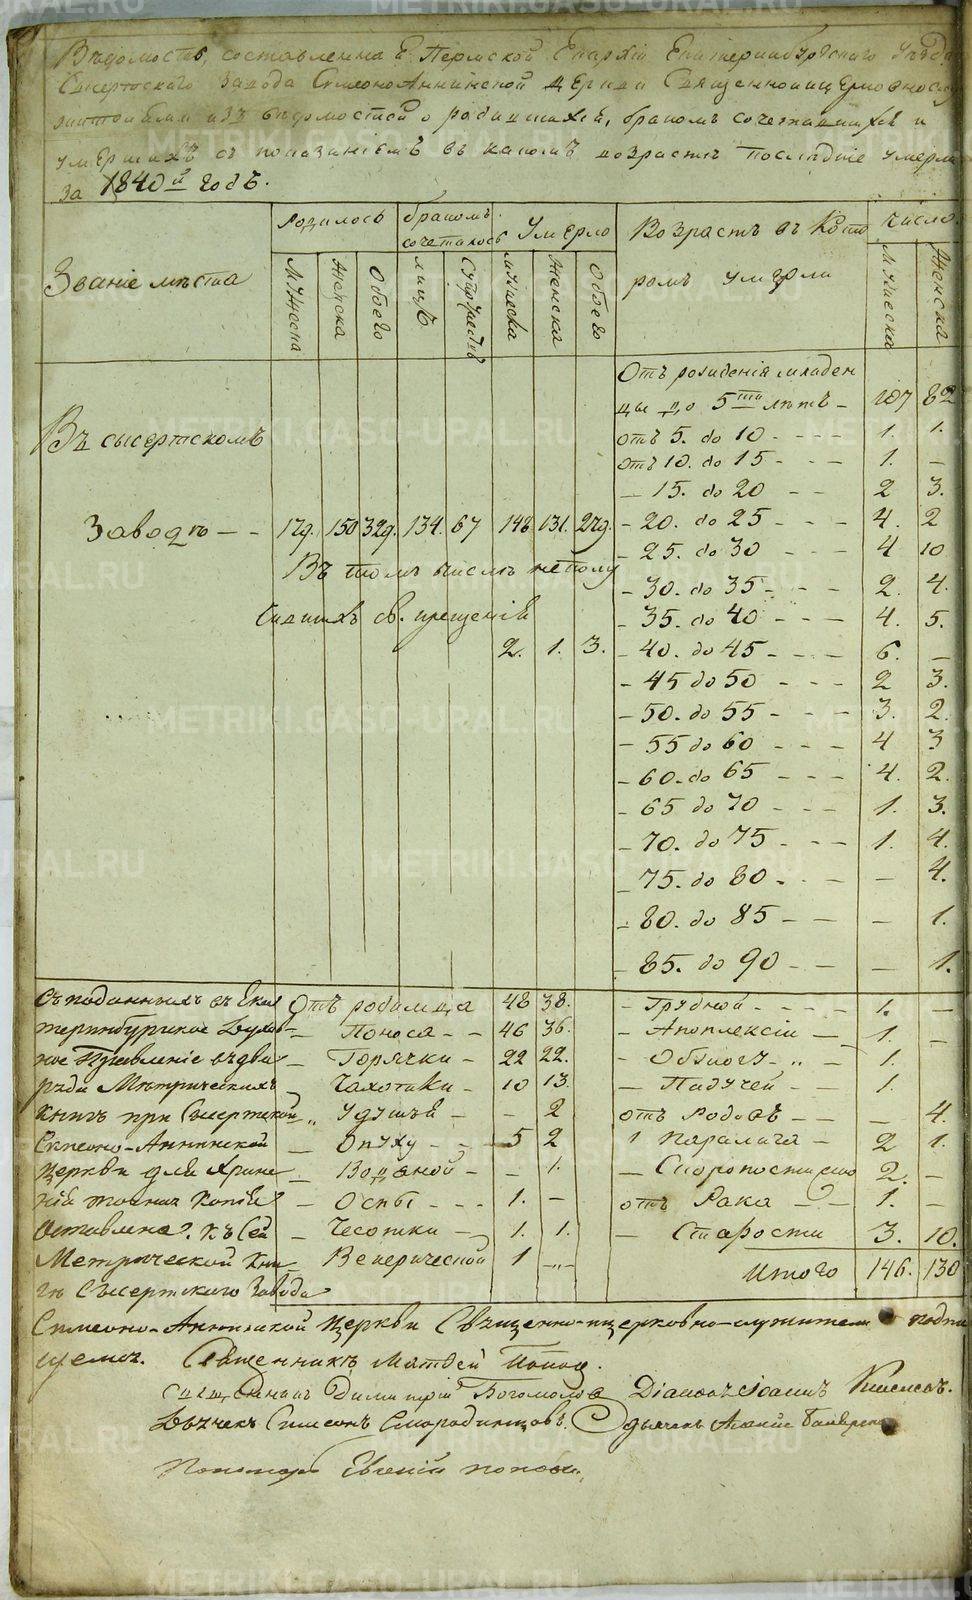 Вѣдомость, составленна в Пермской Епархіи Екатеринбургскаго Уѣзда
Сысертского Завода СимеоноАннинской церкви Священноицерковнослу
жителями изъ вѣдомостей о родившихся, бракомъ сочетавшихся и
умершихъ съ показаніемъ въ какомъ возрастѣ послѣдніе умерли
за 1840й годъ.
Званіе мѣста
родилось
бракомъ сочеталось
Умерло
Возрастъ въ Кото
ромъ умерли
Число
Мужеска
Женска
Обоего
лицъ
Супружествъ
Мужеска
Женска
Обоего
Мужеска
Женска
Отъ рожденія младен
цы до 5ти лѣтъ - 107 82
Въ сысертскомъ
отъ 5. до 10 - - - - 1. 1.
отъ 10. до 15 - - - 1. -
- 15. до 20 - - 2 3.
Заводѣ - - 179. 150 329. 134. 67 148 131. 279.
- 20. до 25 - - - - 4. 2
- 25. до 30 - - - 4 10
Въ томъ числѣ неполу
- 30. до 35 - - - 2. 4.
чившихъ св. крещенія
- 35. до 40 - - - 4. 5.
2. 1. 3.
- 40. до 45 - - - - 6. -
- 45 до 50 - - - 2 3.
- 50. до 55 - - - - 3. 2.
- 55 до 60 - - - 4 3
- 60. до 65 - - - 4. 2.
- 65 до 70 - - - 1. 3.
- 70. до 75 - - - 1. 4.
- 75. до 80 - - - 4.
- 80. до 85 - - - 1.
85. до 90 - - - 1.
Съ поданныхъ въ Ека
теринбургское Духов
ное Правленіе
ряди Метрическихъ
книгъ при Сысертской
Симеоно-Аннинской
церкви для хране
нія копія
Оставлена. Къ сей
Метрической кни
гѣ Сысертского Завода
Отъ родимца 48 38.
- Поноса - - 46 36.
- Горячки - 22 22.
- Чахотки - 10 13.
" Удушья - - 2
- Опуху - - - 5 2
- Водяной - - 1.
- Оспы - - - 1. -
- Чесотки - 1. 1.
- Венерической 1 -"-
- Грудной - - - - 1. -
- Апоплексіи - 1. -
- Обжогу - " - 1.
- Падучей - - 1.
отъ Родовъ - - - 4.
Паралича - 2 1.
- Скоропостижно 2. -
отъ Рака - - 1. -
- Старости 3. 10.
Итого 146. 130
Симеоно-Аннинской церкви Священно-церковно-служители подпи
Священникъ Матвей Попов.
Священникъ Димитрій Богомолов Діаконъ Іоаннъ
Дьячекъ Симеонъ Смородинцовъ. дьячекъ
Пономарь Евгеній попов
METRIKI.GASO-URAL.RU